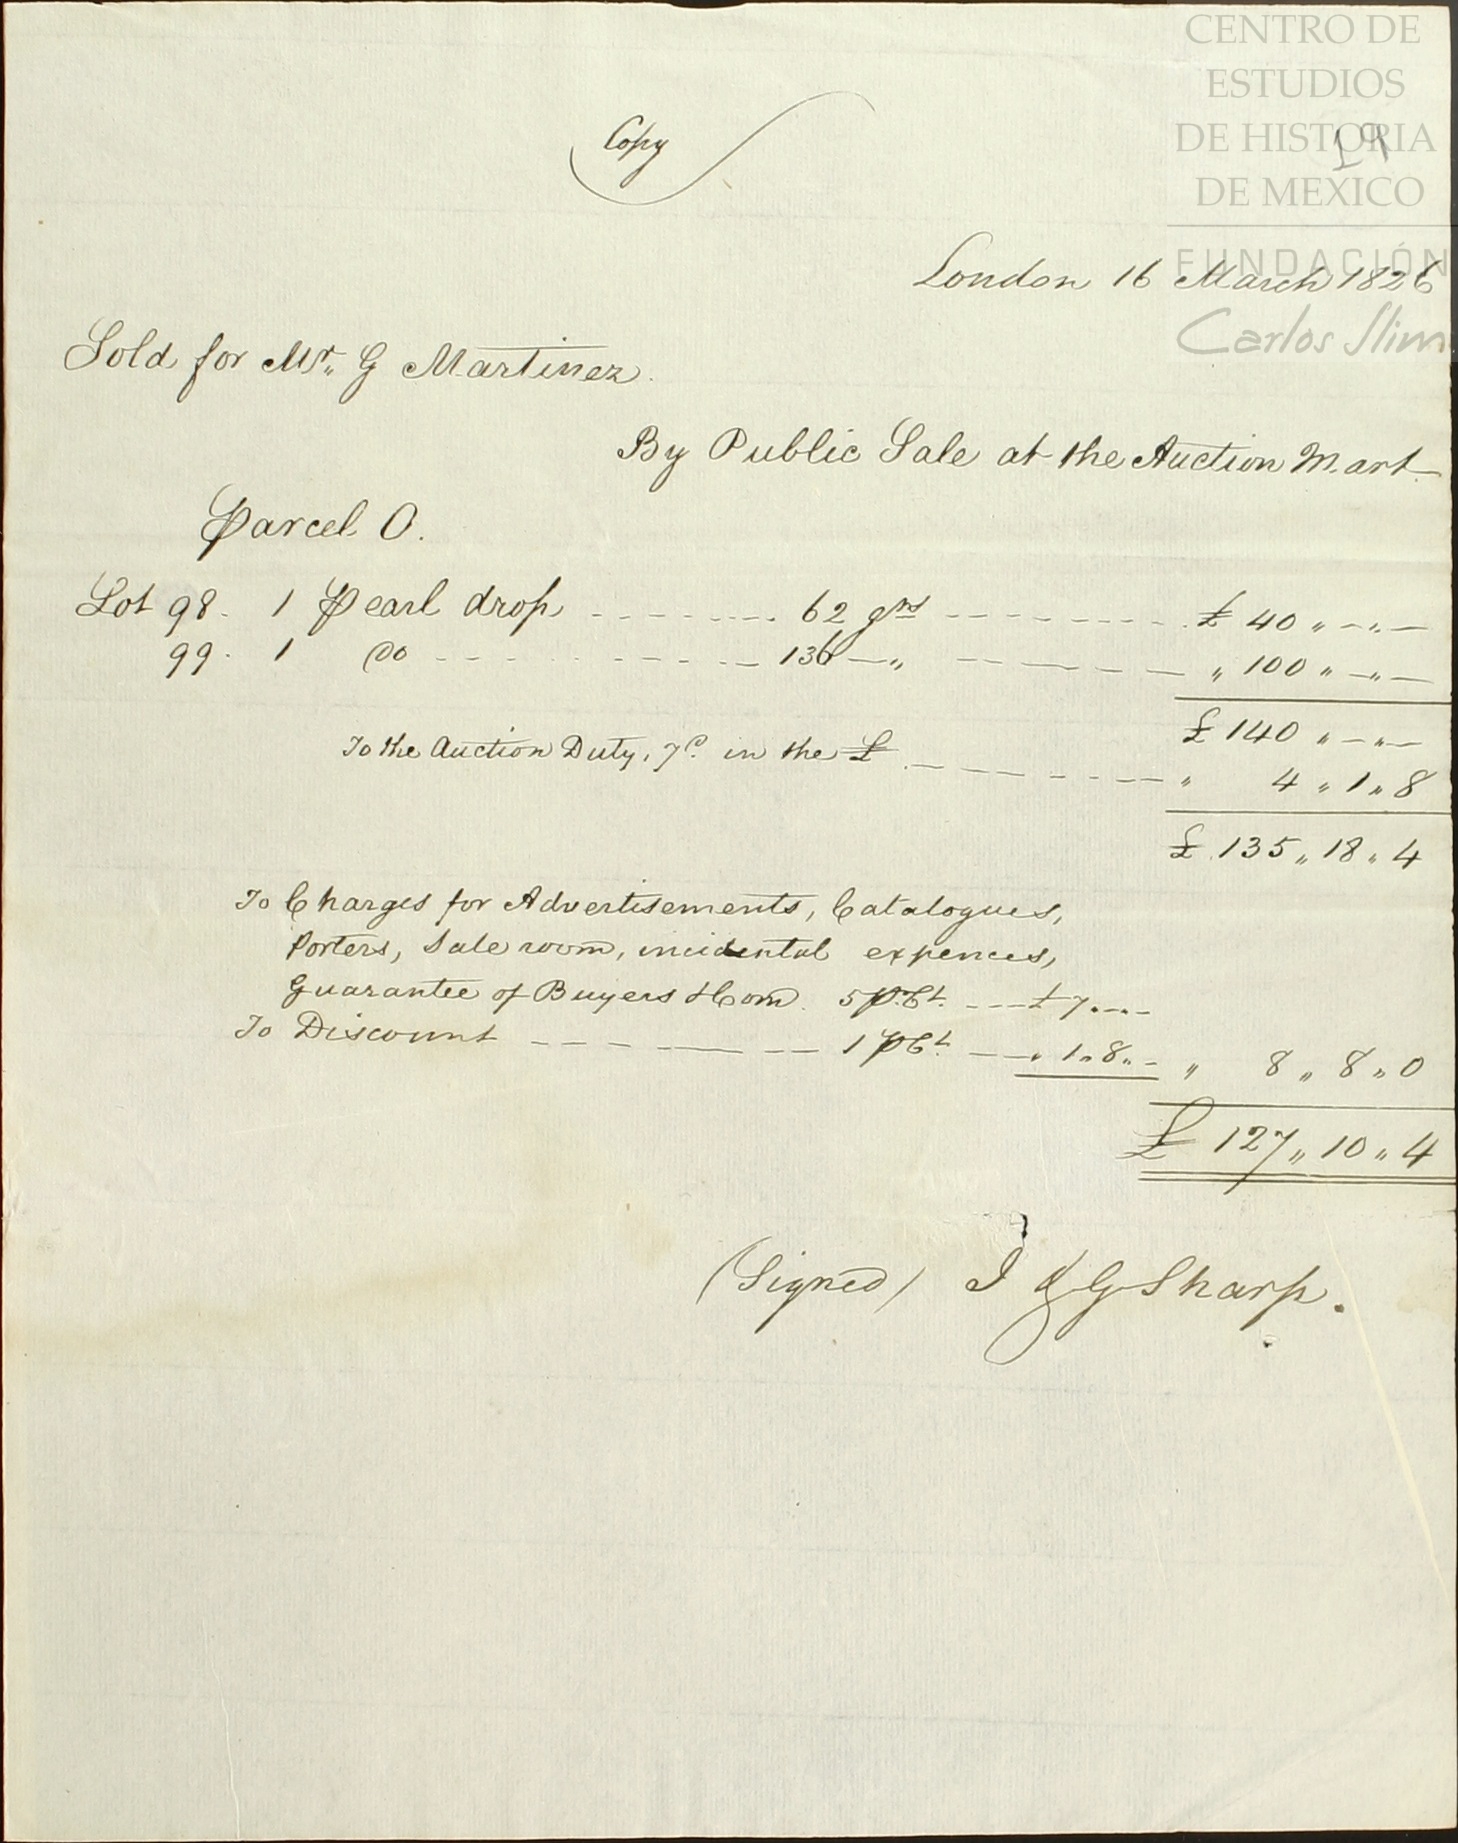 CENTRO DE
ESTUDIOS
DE HISTORIA
DE MEXICO
FUNDACIÓN
Carlos Slim
19
Copy
London 16 March 1826
Sold for Mr. G Martinez.
By Public Sale at the Auction Mart
Parcel O.
Lot 98. 1 Pearl drop ------- 62 grs -------- £ 40 " - " -
99. 1 Do ------- 136 - " ------- " 100 " - " -
£ 140 " - " -
To the Auction Duty, 7d. in the £ ------- " 4 " 1 " 8
£ 135 " 18 " 4
To Charges for Advertisements, Catalogues,
Porters, Sale room, incidental expences,
Guarantee of Buyers & Com. 5 P. Ct. --- £ 7 " - " -
To Discount ------- 1 P Ct. --- " 1 " 8 " - " 8 " 8 " 0
£ 127 " 10 " 4
(Signed) J & G Sharp.